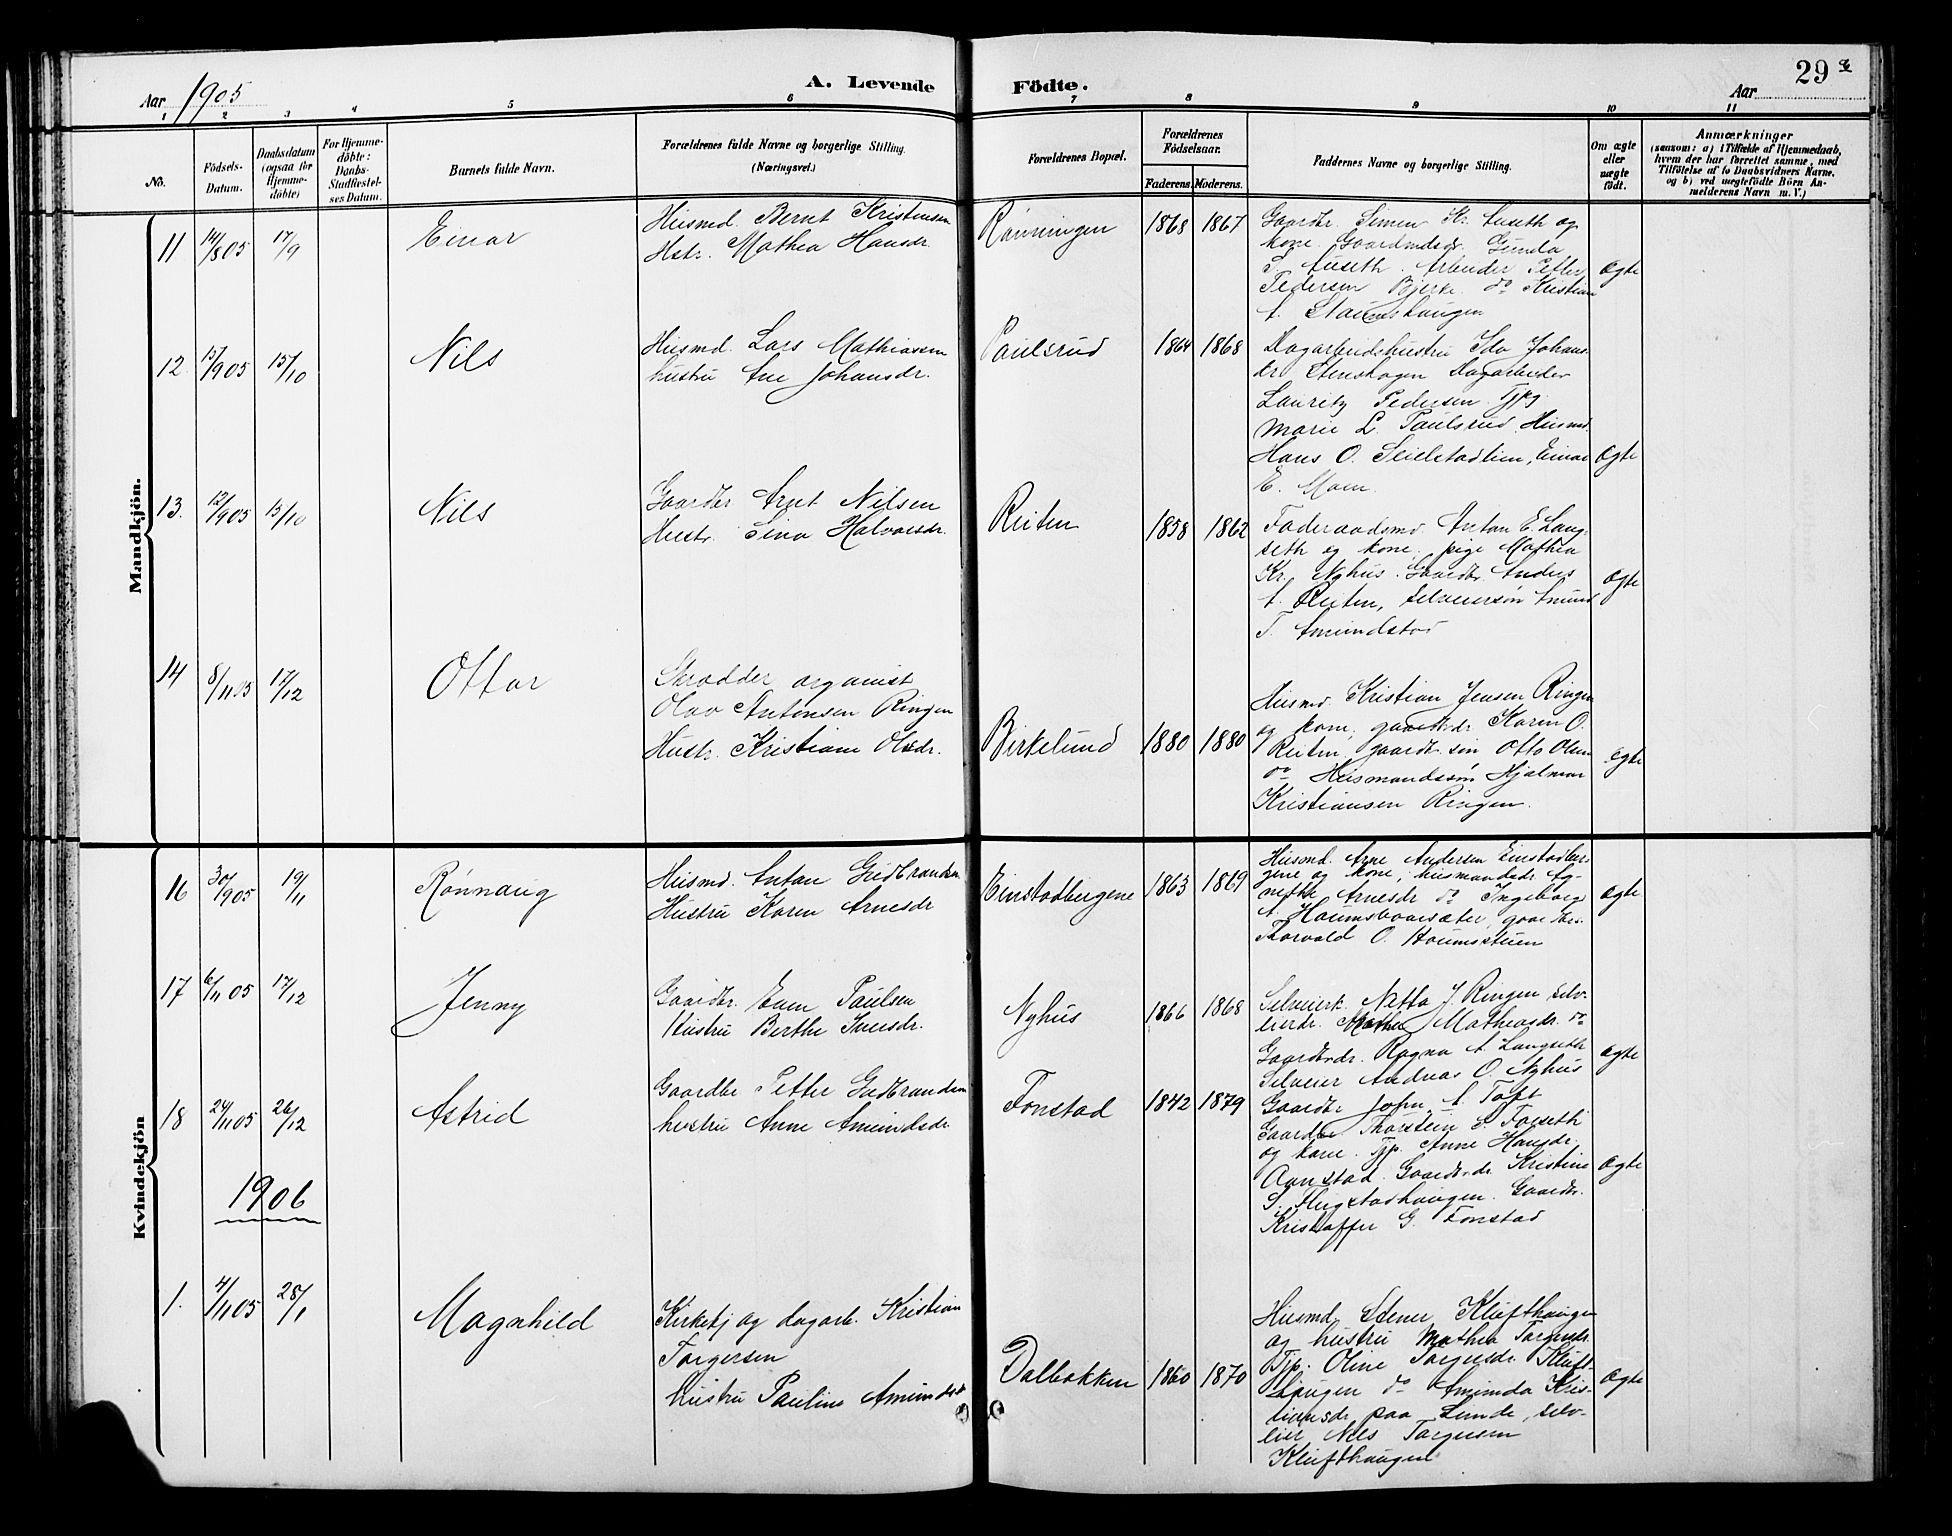 Aar 1905
A. Levende Fødte.
29
Aar
1 2 3 4 5 6 7 8 9 10 11
No.
Fødsels-
Datum.
Daabsdatum
(ogsaa for
Hjemme-
døbte)
For Hjemme-
døbte:
Daabs-
Stadfæstel-
ses Datum.
Barnets fulde Navn.
Forældrenes fulde Navne og borgerlige Stilling.
(Næringsvei.)
Forældrenes Bopæl.
Forældrenes
Fødselsaar.
Faderens.
Moderens.
Faddernes Navne og borgerlige Stilling.
Om ægte
eller
uægte
født.
Anmærkninger
(saasom: a) i Tilfælde af Hjemmedaab,
hvem der har forrettet samme, med
Tilføielse af to Daabsvidners Navne,
og b) ved uægtefødte Børn An-
melderens Navn m. V.)
Mandkjøn.
11 14/8 05 17/9 Einar
Husmd. Bernt Kristensen
Hstr. Mathea Hansdr.
Rønningen 1868 1867
Gaardbr. Simen Kr. Auseth og
kone. Gaardmdsdr. Gunda
S. Auseth. Arbeider Petter
Pedersen Bjerke. do Kristian
A. Staumshaugen
ægte
12. 15/9 05 15/10 Nils
Husmd. Lars Mathiassen
hustru Ane Johansdr.
Paulsrud 1864 1868
Dagarbeidshustru Ida Johans-
dr. Stenshagen Dagarbeider
Lauritz Pedersen. Tjpg.
Marie L. Paulsrud. Husmd.
Hans O. Seielstadlien, Einar
E. Moen
ægte
13. 12/9 05 15/10 Nils
Gaardbr Arnt Nilsen
Hustr. Sina Halvorsdr.
Reiten 1858 1862
Føderaadsmd. Anton E. Lang-
seth og kone, pige Mathea
Kr. Nyhus. Gaardbr. Anders
A. Reiten, Selveiersøn Amund
T. Amundstad
ægte
14 8/11 05 17/12 Ottar
Skrædder organist
Olav Antonsen Ringen
Hustr. Kristiane Olsdr.
Birkelund 1880 1880
Husmd. Kristian Jensen Ringen
og kone, gaardbrdr. Karen O.
Reiten, gaardbr. søn Otto Olsen
do Husmandssøn Hjalmar
Kristiansen Ringen.
ægte
Kvindekjøn
16 30/9 05 19/11 Rønnaug
Husmd. Anton Gudbrandsen
Hustru Karen Arnesdr
Einstadbergene 1863 1869
Husmd. Arne Andersen Einstadber-
gene og kone, husmandsdr. Ag-
nethe Arnesdr do Ingeborg
A. Houmsbversæter, gaardbr.
Thorvald O. Houmsstuen
ægte
17 6/11 05 17/12 Jenny
Gaardbr. Even Paulsen
Hustru Berthe Iversdr.
Nyhus 1866 1868
Selveierk. Netta J. Ringen selv-
eierdr. Mathea Mathiasdr. do
Gaardbrdr. Ragna A. Langseth
Selveier Andreas O. Nyhus
ægte
18 24/11 05 26/12 Astrid
Gaardbr Petter Gudbrandsen
hustru Anne Amundsdr
Fonstad 1842 1879
Gaardbr John A. Toft
Gaardbr Thorstein S. Forseth
og kone. Tjp. Anne Hansdr.
Aanstad. Gaardbrdr. Kristine
S. Flugstadhaugen. Gaardbr.
Kristoffer G. Fonstad
ægte
1906
1. 4/11 05 28/1 Magnhild
Kirketj og dagarb. Kristian
Torgersen
hustru Pauline Amundsdr
Dalbakken 1860 1870
Husmd. Stener Klufthaugen
og hustru Mathea Torgersdr.
Tjp. Oline Torgersdr. Kluft-
haugen do Amunda Kris-
tiansdr. paa Lunde, selv-
eier Nils Torgersen
Klufthaugen
ægte